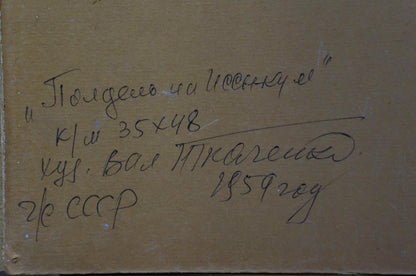 "Полдень на Иссыккуле"
к/м 35×48
худ. Вал Ткаченко.
1959 год
ч/с СССР